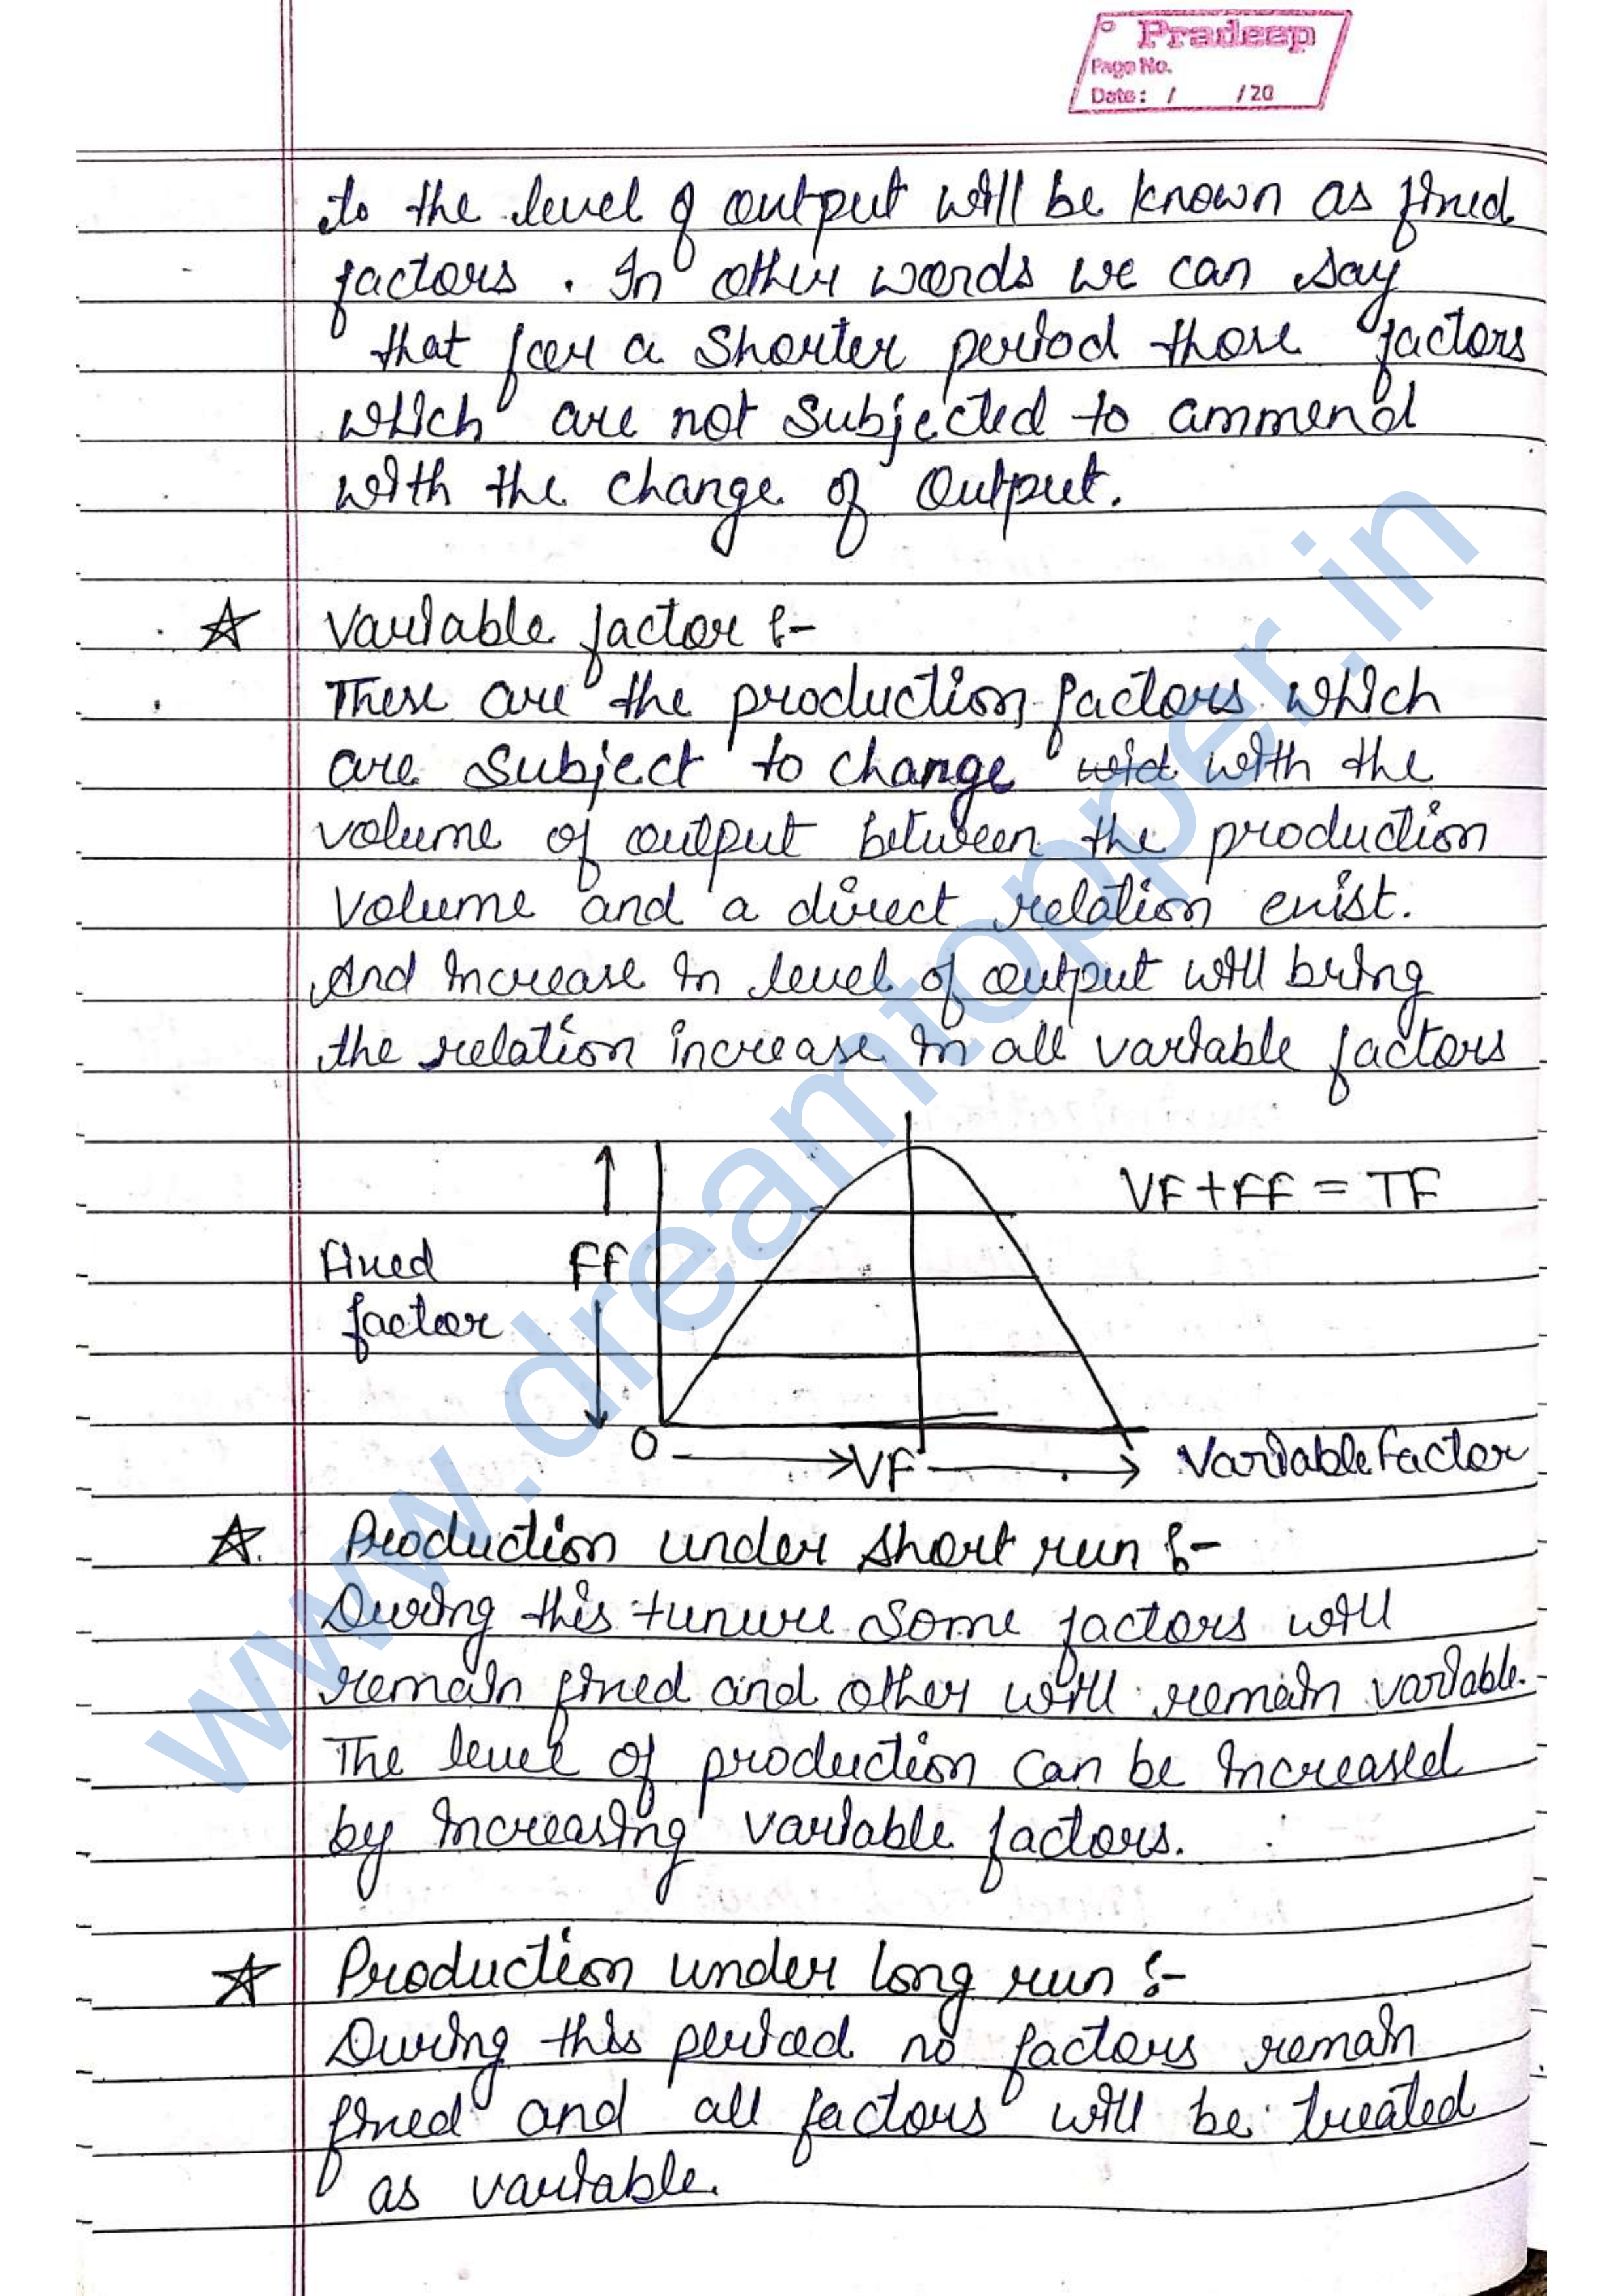 Pradeep
Page No.
Date: / /20
to the level of output will be known as fixed
factors. In other words we can say
that for a shorter period those factors
which are not subjected to ammend
with the change of output.
☆ Variable factor :-
These are the production factors which
are subject to change wid with the
volume of output between the production
volume and a direct relation exist.
And increase in level of output will bring
the relation increase in all variable factors
VF+FF = TF
Fixed
factor
FF
O
VF
Variable Factor
☆ Production under short run :-
During this tunure some factors will
remain fixed and other will remain variable.
The level of production can be increased
by increasing variable factors.
☆ Production under long run :-
During this period no factors remain
fixed and all factors will be treated
as variable.
www.dreamtopper.in